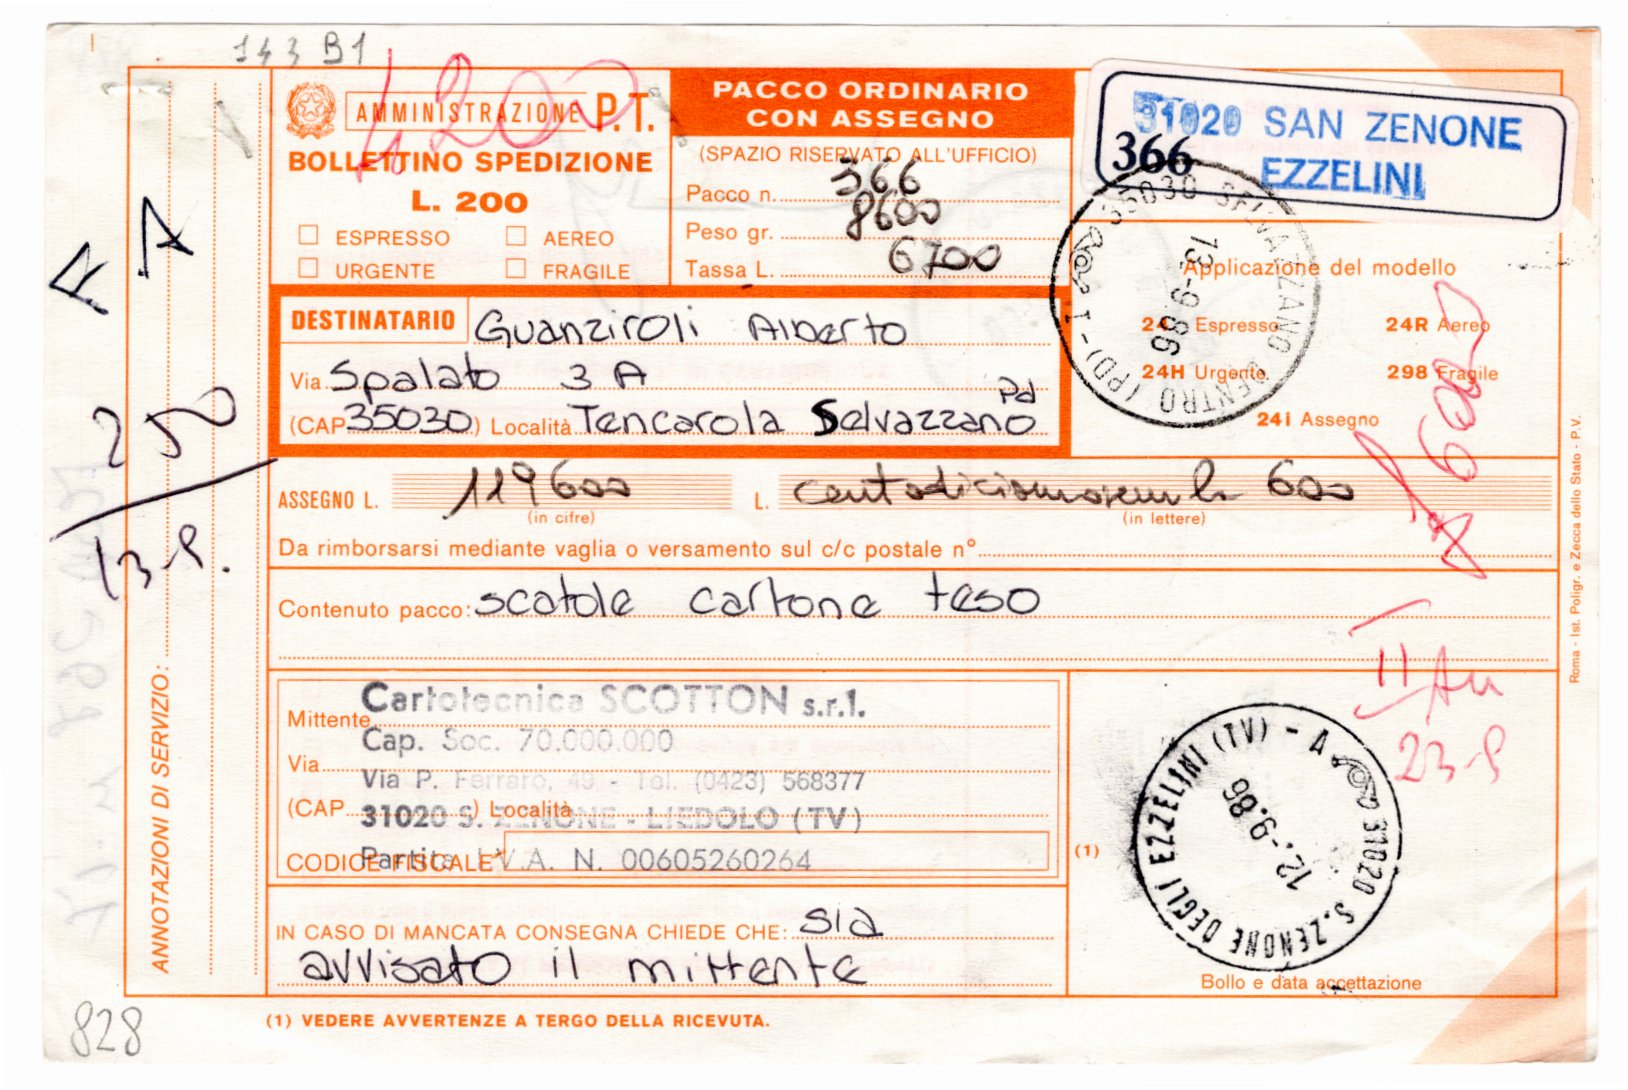 143 B1
4200
AMMINISTRAZIONE P.T.
BOLLETTINO SPEDIZIONE
L. 200
☐ ESPRESSO ☐ AEREO
☐ URGENTE ☐ FRAGILE
PACCO ORDINARIO
CON ASSEGNO
(SPAZIO RISERVATO ALL'UFFICIO)
Pacco n. 366
Peso gr. 8600
Tassa L. 6700
31020 SAN ZENONE
366 EZZELINI
35030 SELVAZZANO CENTRO (PD) - 1
13.-9.86
Applicazione del modello
24 Espresso 24R Aereo
24H Urgente 298 Fragile
24i Assegno
DESTINATARIO Guanziroli Alberto
Via Spalato 3 A
Pd
(CAP 35030) Località Tencarola Selvazzano
ASSEGNO L. 119600 L. 600
(in cifre) (in lettere)
Da rimborsarsi mediante vaglia o versamento sul c/c postale n°
Contenuto pacco: scatole cartone teso
Cartotecnica SCOTTON s.r.l.
Mittente
Cap. Soc. 70.000.000
Via
Via P. Ferraro, 49 - Tel. (0423) 568377
(CAP ) Località
31020 S. ZENONE - LIEDOLO (TV)
CODICE FISCALE
Partita I.V.A. N. 00605260264
(1)
31020 S. ZENONE DEGLI EZZELINI (TV) - A
12.-9.86
IN CASO DI MANCATA CONSEGNA CHIEDE CHE: sia
avvisato il mittente
Bollo e data accettazione
(1) VEDERE AVVERTENZE A TERGO DELLA RICEVUTA.
ANNOTAZIONI DI SERVIZIO:
250
828
Roma - Ist. Poligr. e Zecca dello Stato - P.V.